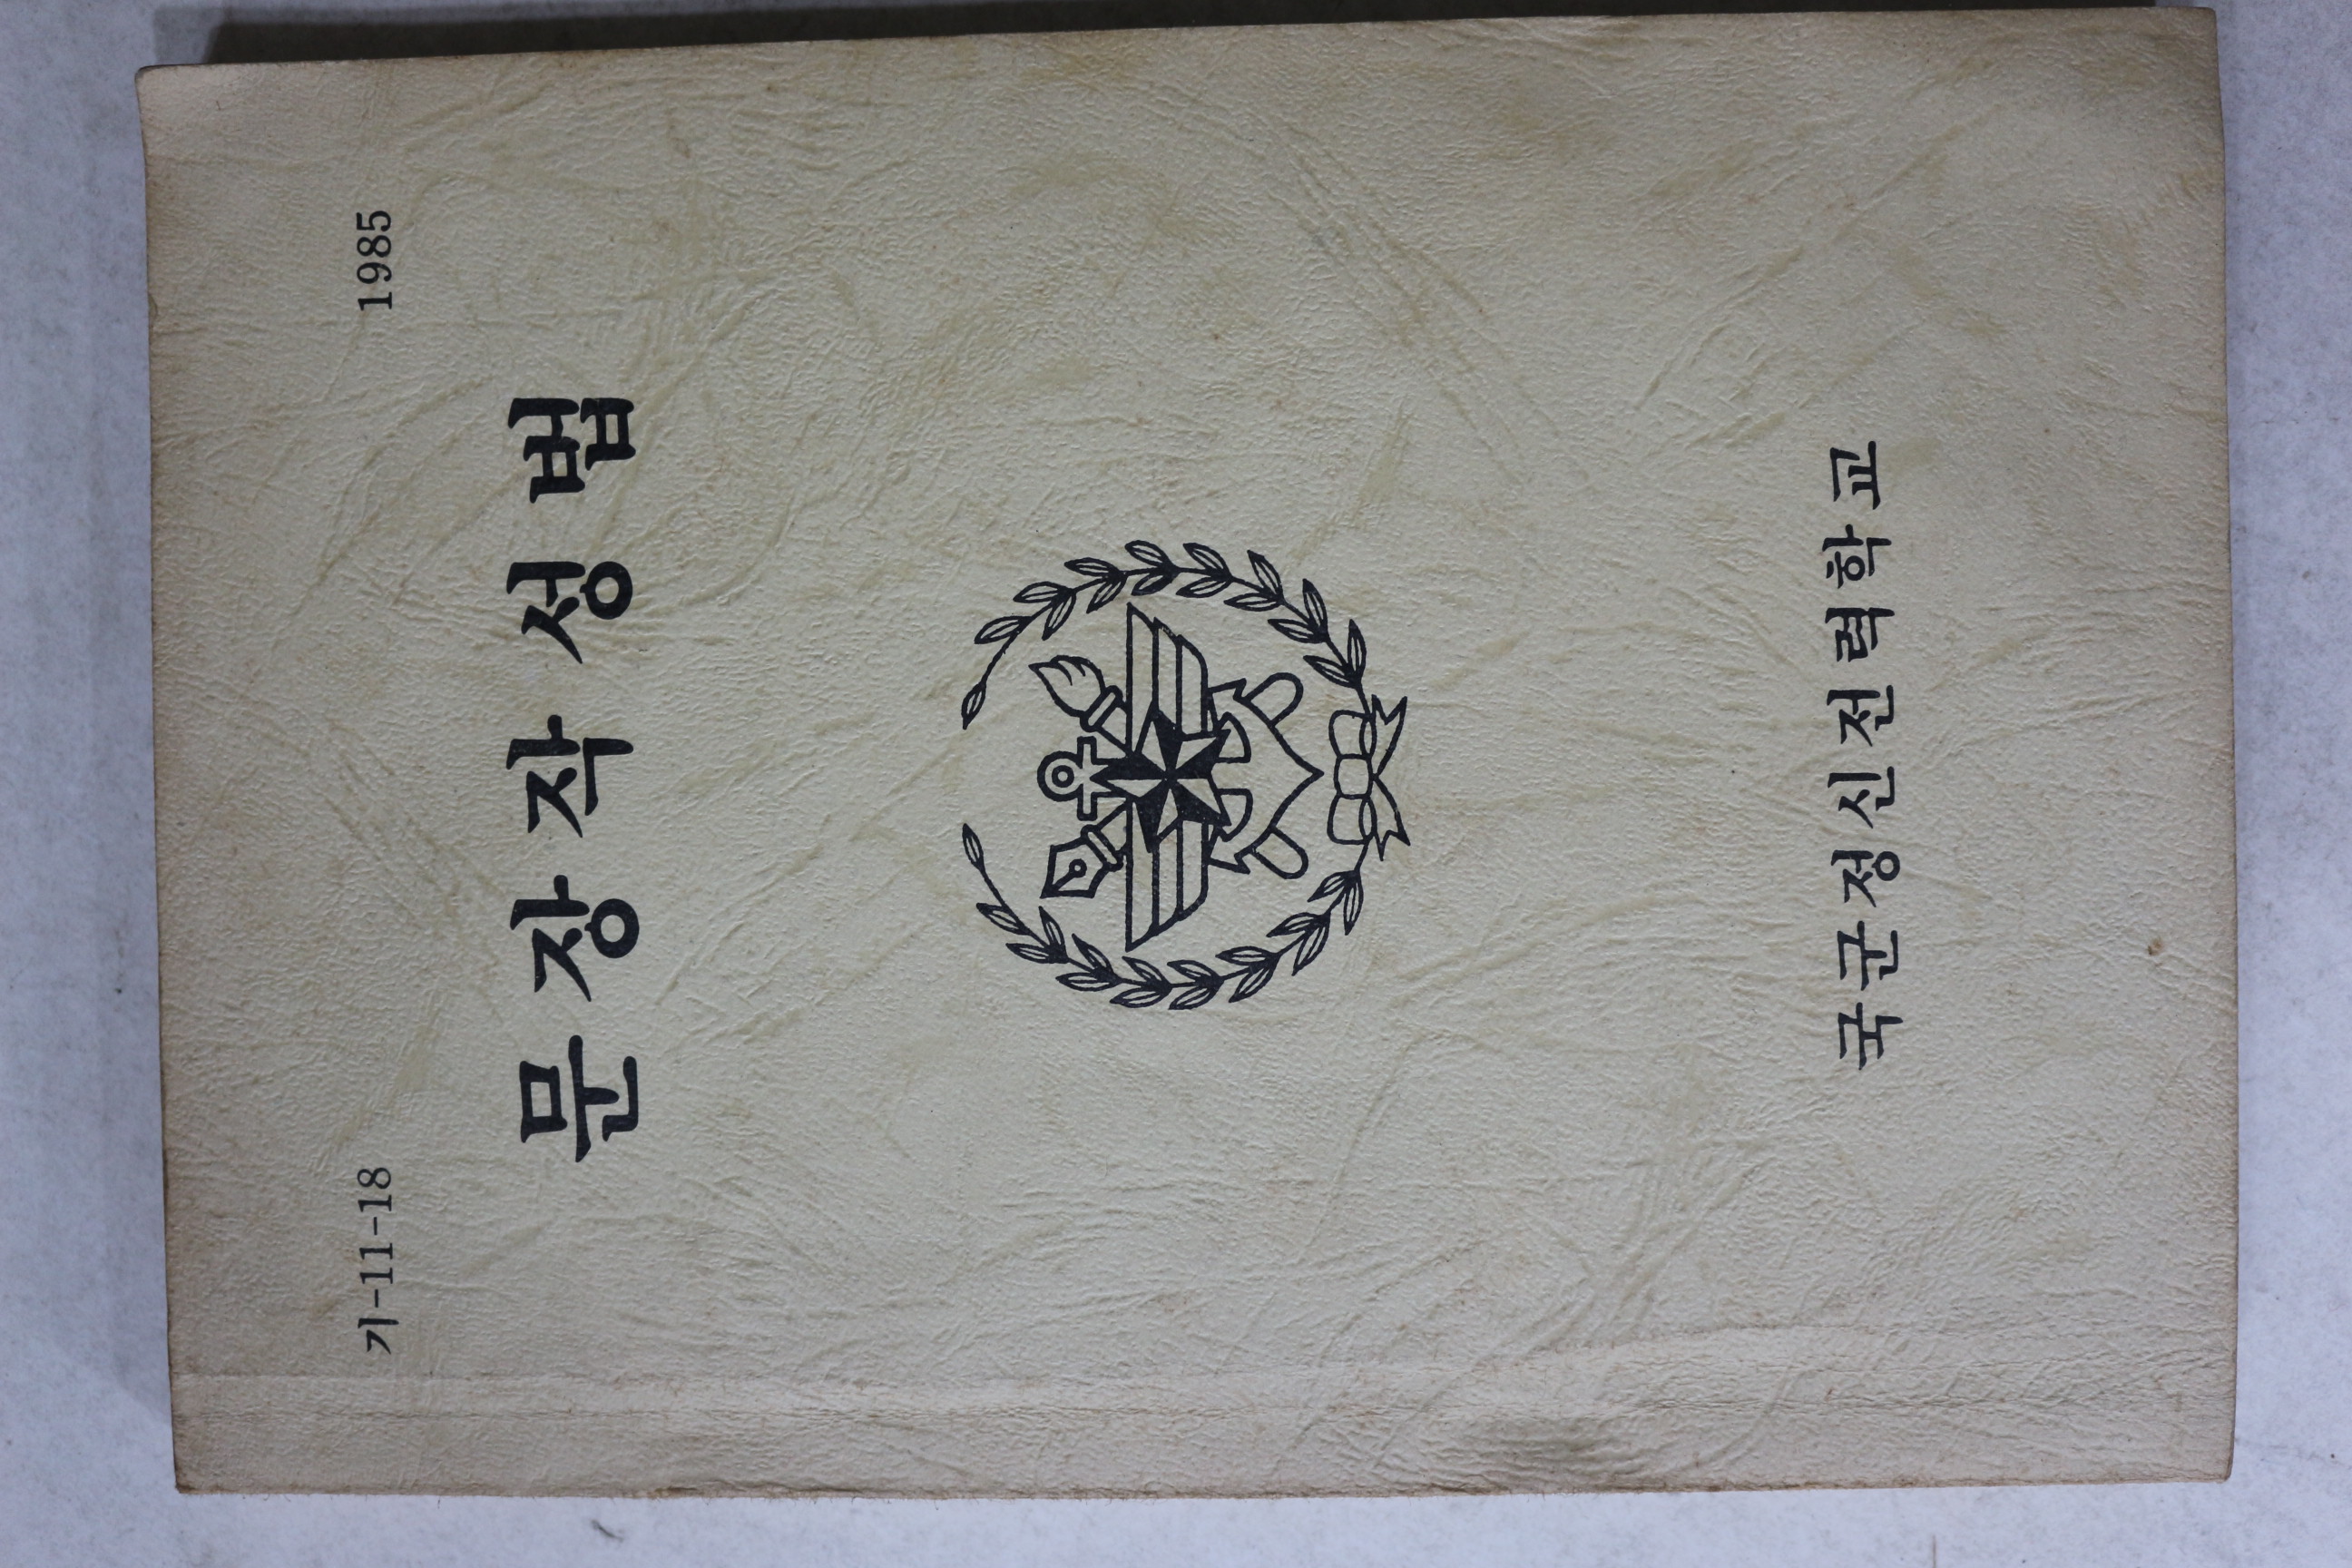 기-11-18
1985
문장작성법
국군정신전력학교